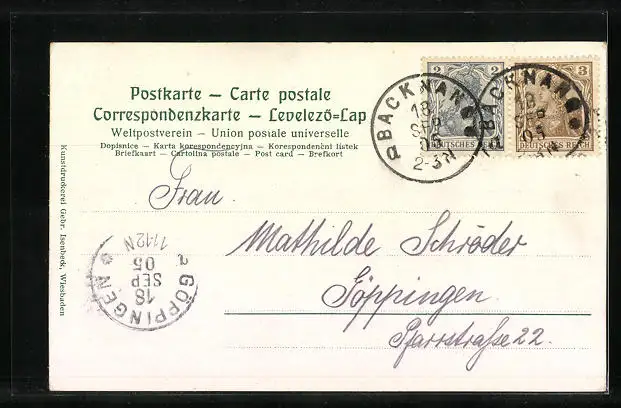 Postkarte – Carte postale
Correspondenzkarte – Levelezö=Lap
Weltpostverein – Union postale universelle
Dopisnice – Karta korespondencyjna – Korespondenční listek
Briefkaart – Cartolina postale – Post card – Brefkort
2
3
DEUTSCHES REICH
DEUTSCHES REICH
BACKNANG
18
SEP
05
2-3N
BACKNANG
18
SEP
05
Kunstdruckerei Gebr. Isenbeck, Wiesbaden
Frau
Mathilde Schröder
Göppingen
Pfarrstraße 22.
GÖPPINGEN
18
SEP
05
11-12N